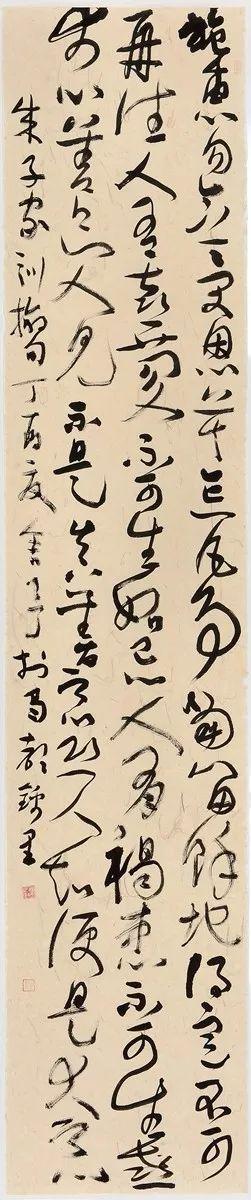 施惠勿念受恩莫忘凡事當留餘地得意不可
再往人有喜慶不可生妒忌心人有禍患不可生喜
幸心善欲人見不是真善惡恐人知便是大惡
朱子家訓摘句丁酉夏於蜀都錦里